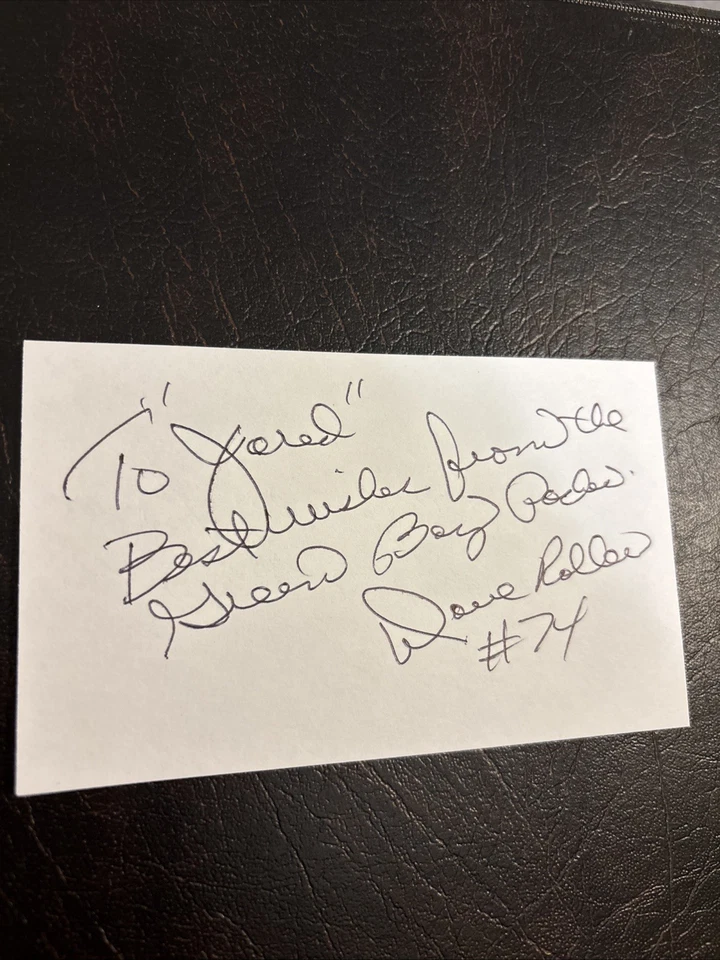 To "Jared"
Best wishes from the
Green Bay Packers.
Dave Roller
#74